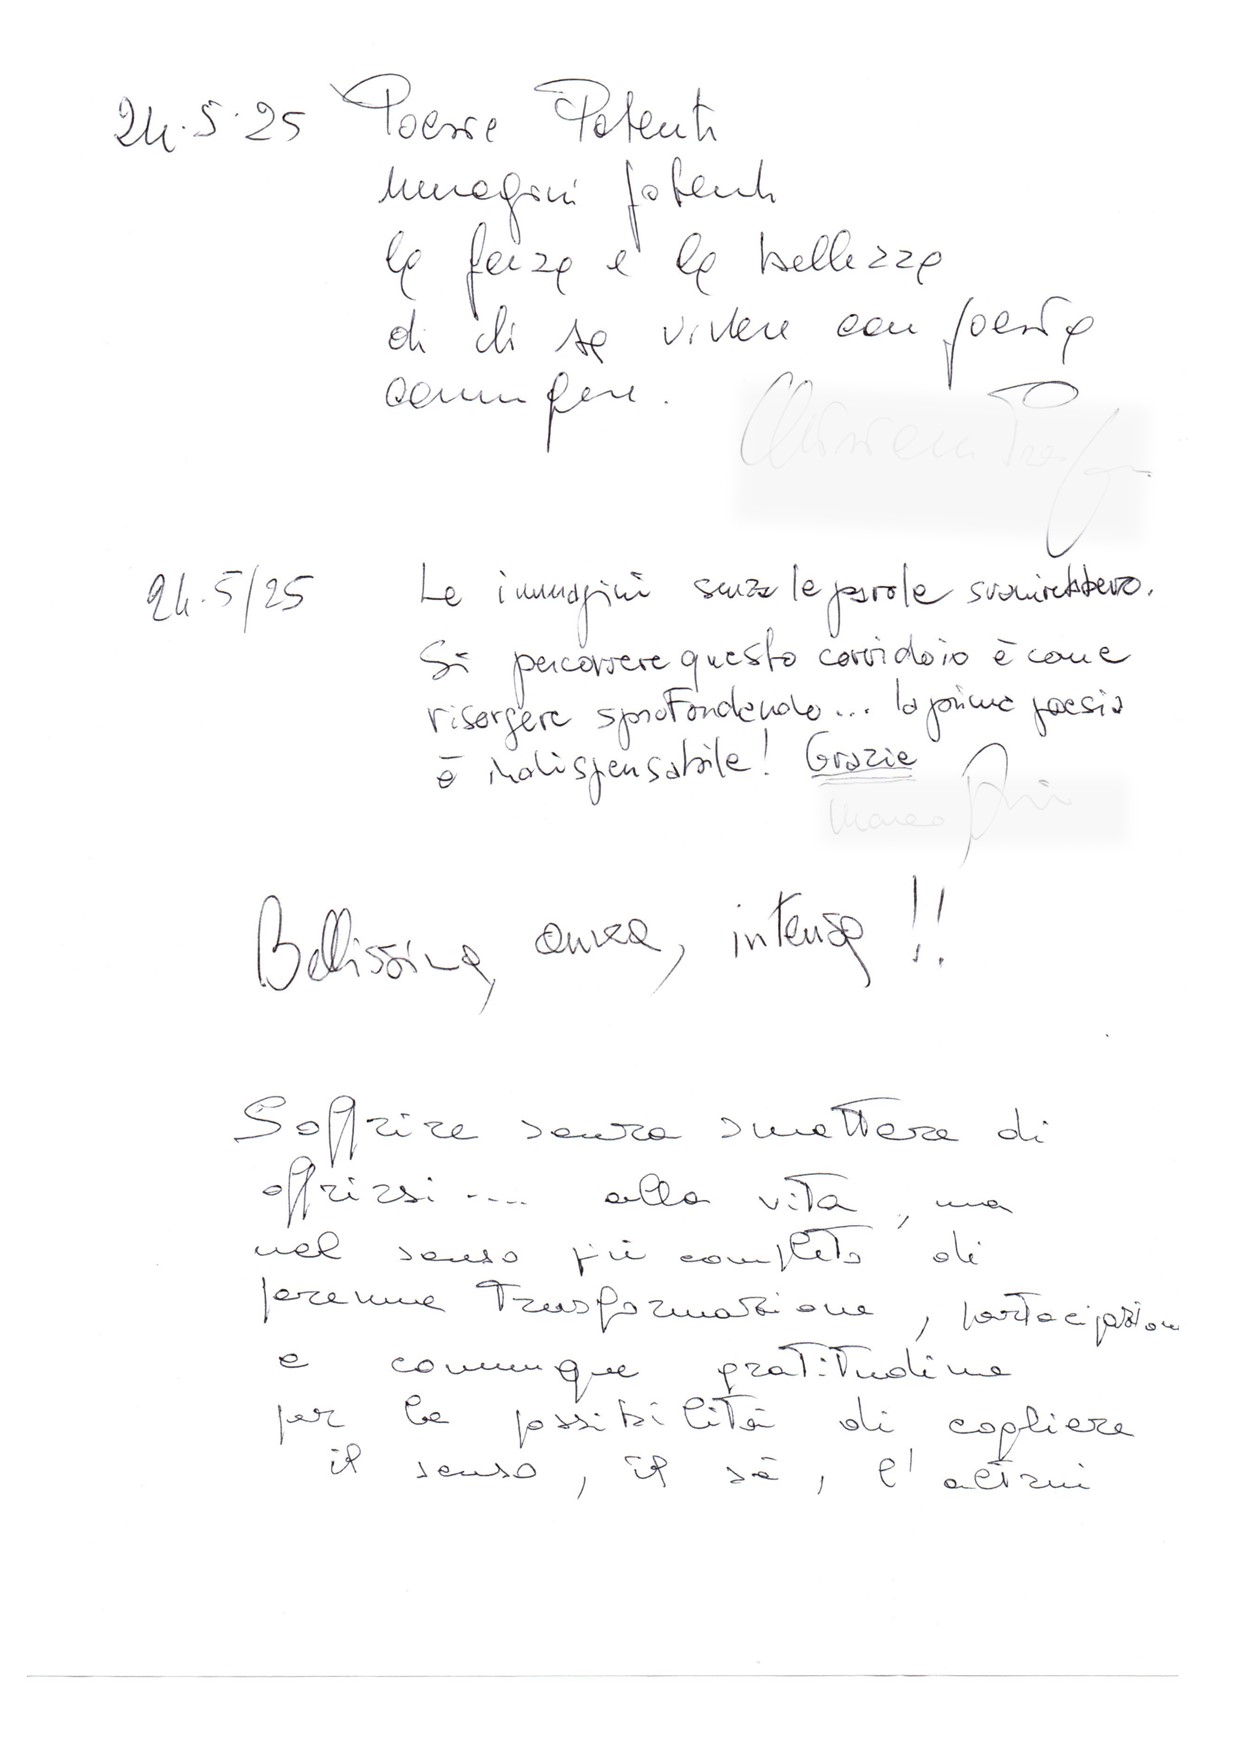 24.5.25 Poesie Potenti
Immagini potenti
la forza e la bellezza
di chi sa vivere con poesia
comunque.
24.5/25 Le immagini senza le parole svanirebbero.
Sì percorrere questo corridoio è come
risorgere sprofondando... la prima poesia
è indispensabile! Grazie
Marco
Bellissima, intensa!!
Soffrire senza smettere di
offrirsi.... alla vita, ma
nel senso più completo di
perenne trasformazione, partecipazione
e comunque gratitudine
per la possibilità di cogliere
il senso, il sé, l'altrui